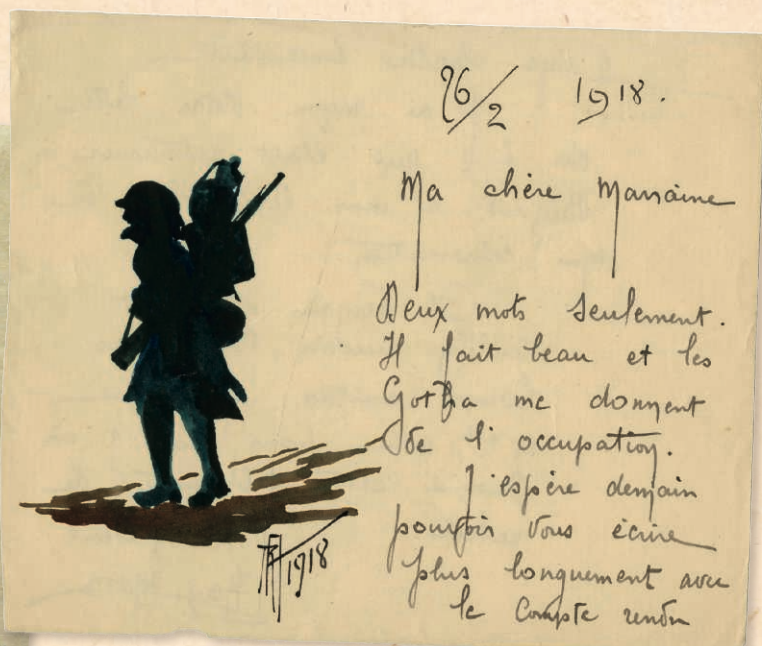 26/2 1918.
Ma chère Marraine
Deux mots seulement.
Il fait beau et les
Gotha me donnent
de l'occupation.
J'espère demain
pouvoir vous écrire
plus longuement avec
le Compte rendu
1918